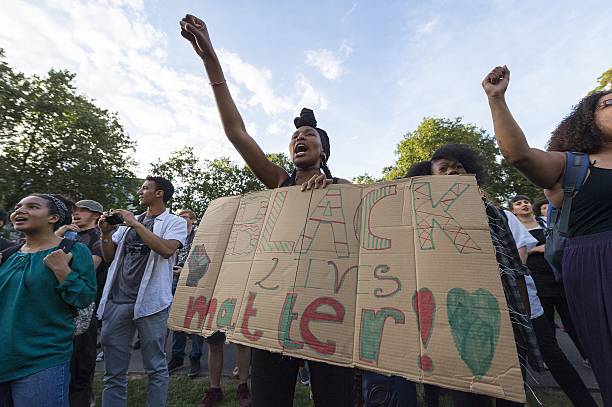 BLACK
LIVS
matter!